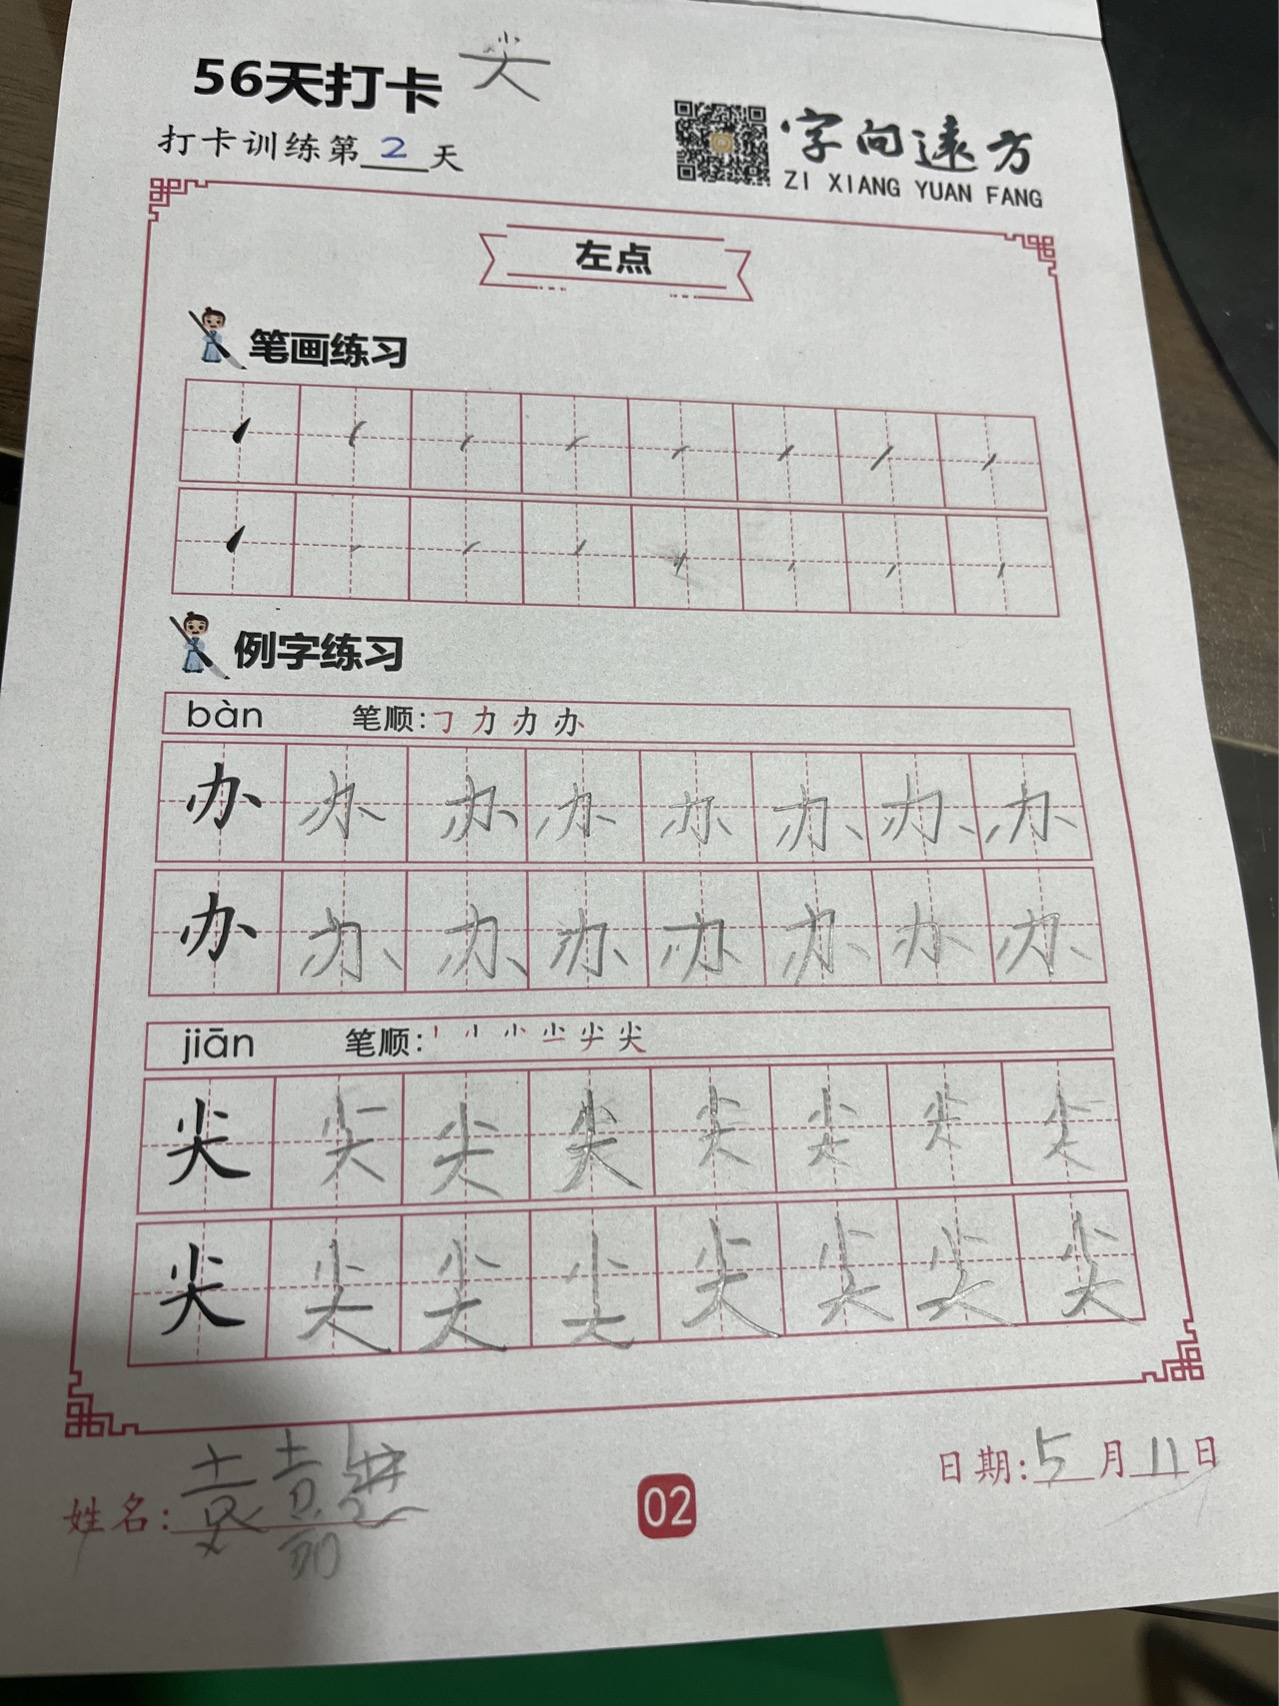 56天打卡 尖
打卡训练第2天
字向远方
ZI XIANG YUAN FANG
左点
笔画练习
例字练习
bàn 笔顺:㇆ 力 力 办
办 办 办 办 办 办 办 办
办 办 办 办 办 办 办 办
jiān 笔顺:丨 小 尖
尖 尖 尖 尖 尖 尖 尖 尖
尖 尖 尖 尖 尖 尖 尖 尖
姓名:袁
日期:5月11日
02